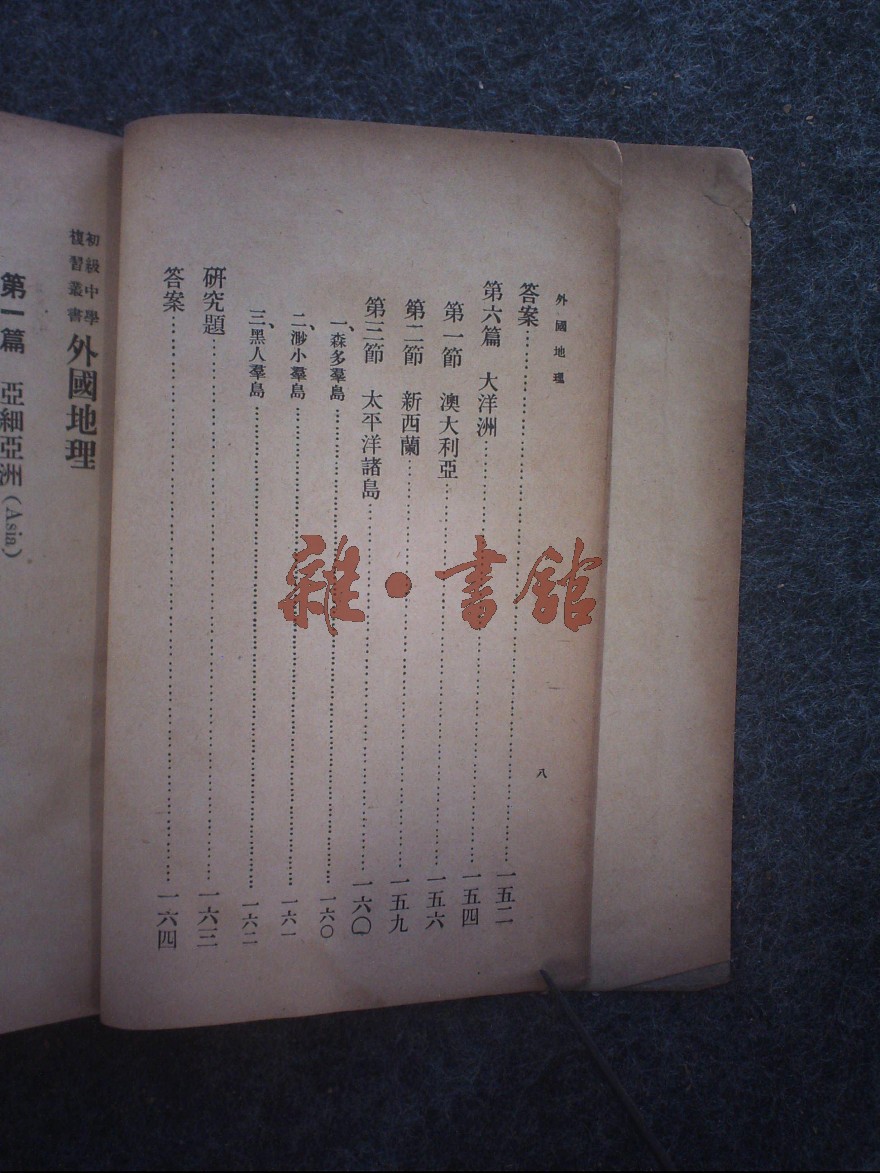 外國地理
八
答案 一五二
第六篇 大洋洲 一五四
第一節 澳大利亞 一五六
第二節 新西蘭 一五九
第三節 太平洋諸島 一六〇
一、森多羣島 一六〇
二、渺小羣島 一六一
三、黑人羣島 一六二
研究題 一六三
答案 一六四
初級中學
複習叢書
外國地理
第一篇 亞細亞洲 (Asia)
雜·書館